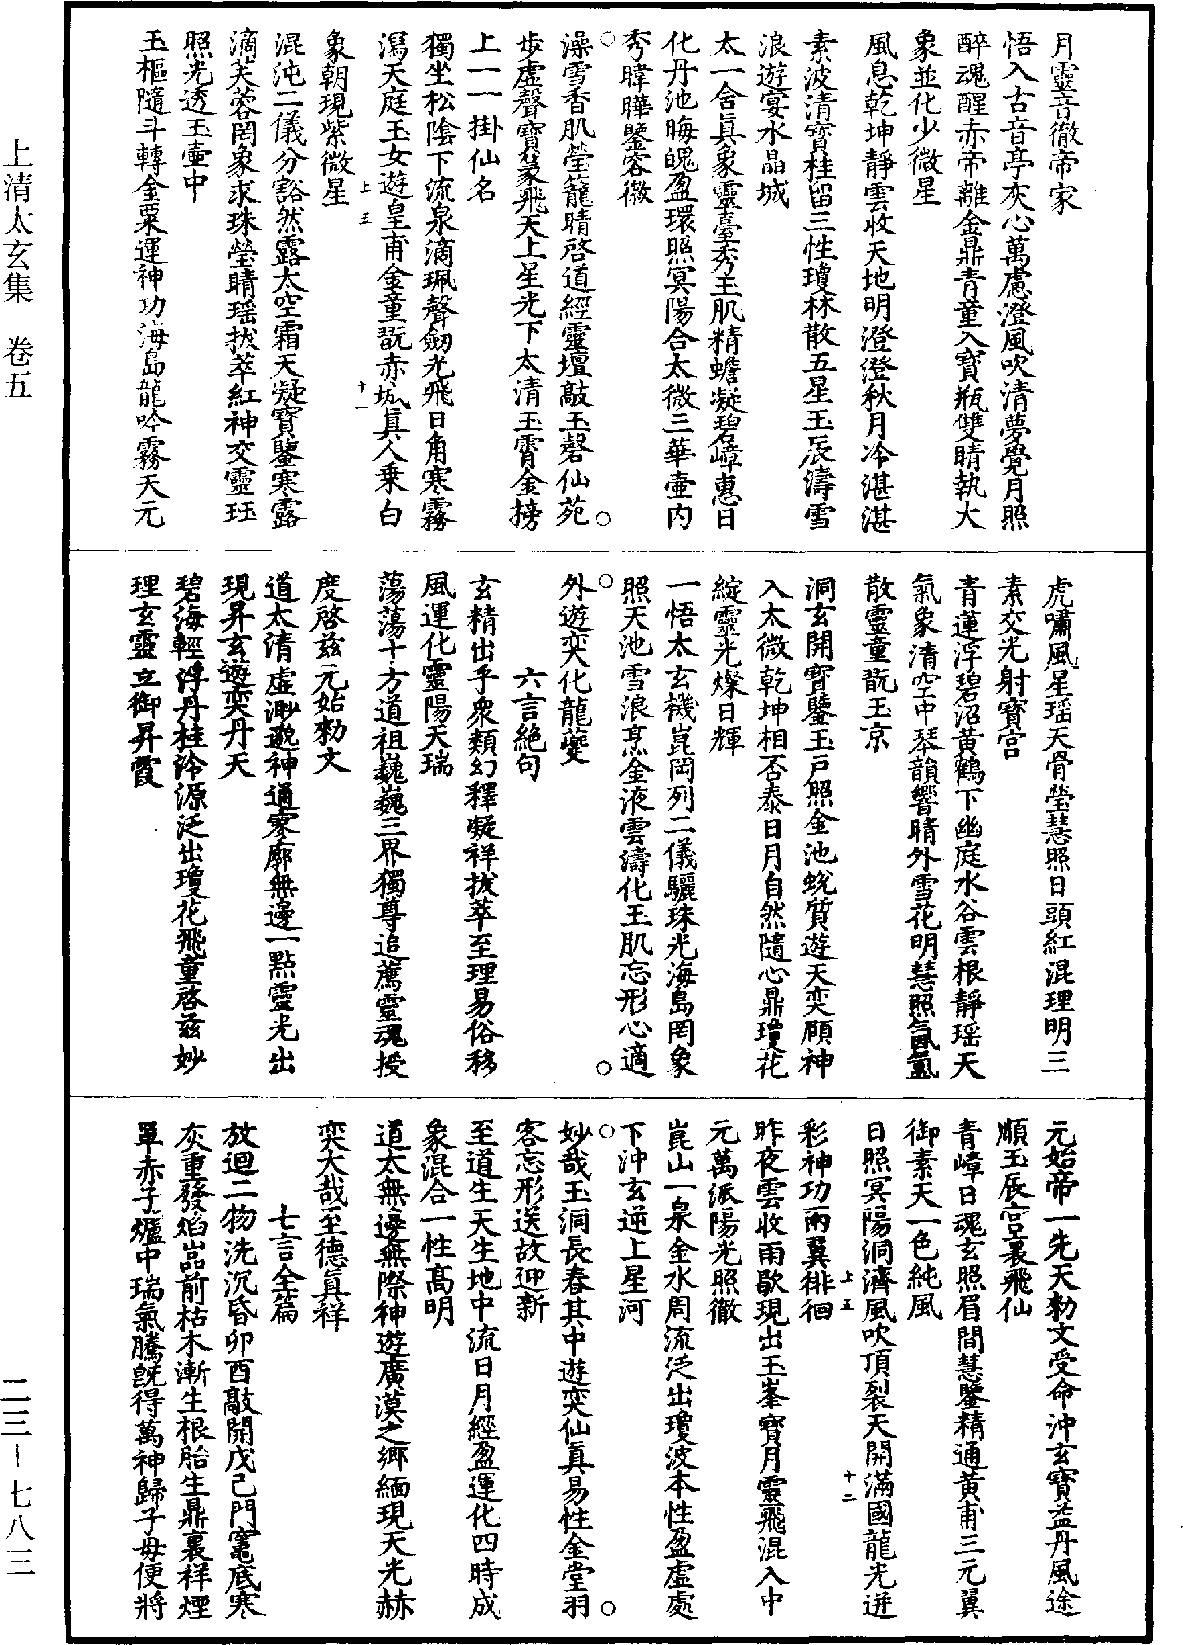 月靈音徹帝家
悟入古音亭灰心萬慮澄風吹清夢覺月照
醉魂醒赤帝離金鼎青童入寶瓶雙睛執大
象並化少微星
風息乾坤靜雲收天地明澄澄秋月冷湛湛
素波清寶桂留三性瓊林散五星玉辰濤雪
浪遊宴水晶城
太一含眞象靈臺秀玉肌精蟾凝碧嶂惠日
化丹池晦魄盈環照冥陽合太微三華壺內
秀暐曄鑒容徽
澡雪香肌瑩龍睛啓道經靈壇敲玉磬仙苑
步虛聲寶篆飛天上星光下太清玉霄金榜
上一一掛仙名
獨坐松陰下流泉滴珮聲劒光飛日角寒霧
瀉天庭玉女遊皇甫金童翫赤城眞人乗白
上三
十一
象朝現紫微星
混沌二儀分豁然露太空霜天凝寶鑒寒露
滴芙蓉罔象求珠瑩睛瑶拔萃紅神交靈珏
照光透玉壺中
玉樞隨斗轉金粟運神功海島龍吟霧天元
虎嘯風星瑶天骨瑩慧照日頭紅混理明三
素交光射寶宮
青蓮浮碧沼黃鶴下幽庭水谷雲根靜瑶天
氣象清空中琴韻響晴外雪花明慧照氤氳
散靈童翫玉京
洞玄開寶鑒玉戶照金池蛻質遊天奕頤神
入太微乾坤相否泰日月自然隨心鼎瓊花
綻靈光燦日輝
一悟太玄機崑岡列二儀驪珠光海島罔象
照天池雪浪烹金液雲濤化玉肌忘形心適
外遊奕化龍虁
六言絕句
玄精出乎衆類幻釋凝祥拔萃至理易俗移
風運化靈陽天瑞
蕩蕩十方道祖巍巍三界獨尊追薦靈魂授
度啓兹元始勑文
道太清虛渺邈神通寥廓無邊一點靈光出
現昇玄遊奕丹天
碧海輕浮丹桂泠源泛出瓊花飛童啓兹妙
理玄靈立御昇霞
元始帝一先天勑文受命沖玄寶益丹風途
順玉辰宮裏飛仙
青嶂日魂玄照眉間慧鑒精通黃甫三元翼
御素天一色純風
日照冥陽洞濟風吹頂裂天開滿國龍光迸
上五
十二
彩神功兩翼徘徊
昨夜雲收雨歇現出玉峯寶月靈飛混入中
元萬派陽光照徹
崑山一泉金水周流泛出瓊波本性盈虛處
下沖玄逆上星河
妙哉玉洞長春其中遊奕仙眞易性金堂羽
客忘形送故迎新
至道生天生地中流日月經盈運化四時成
象混合一性高明
道太無邊無際神遊廣漠之鄉緬現天光赫
奕大哉至德眞祥
七言全篇
放迴二物洗沉昏卯酉敲開戊己門竃底寒
灰重發焰嵓前枯木漸生根胎生鼎裏祥煙
單赤子爐中瑞氣騰旣得萬神歸子母便將
上清太玄集　卷五
二三－七八三